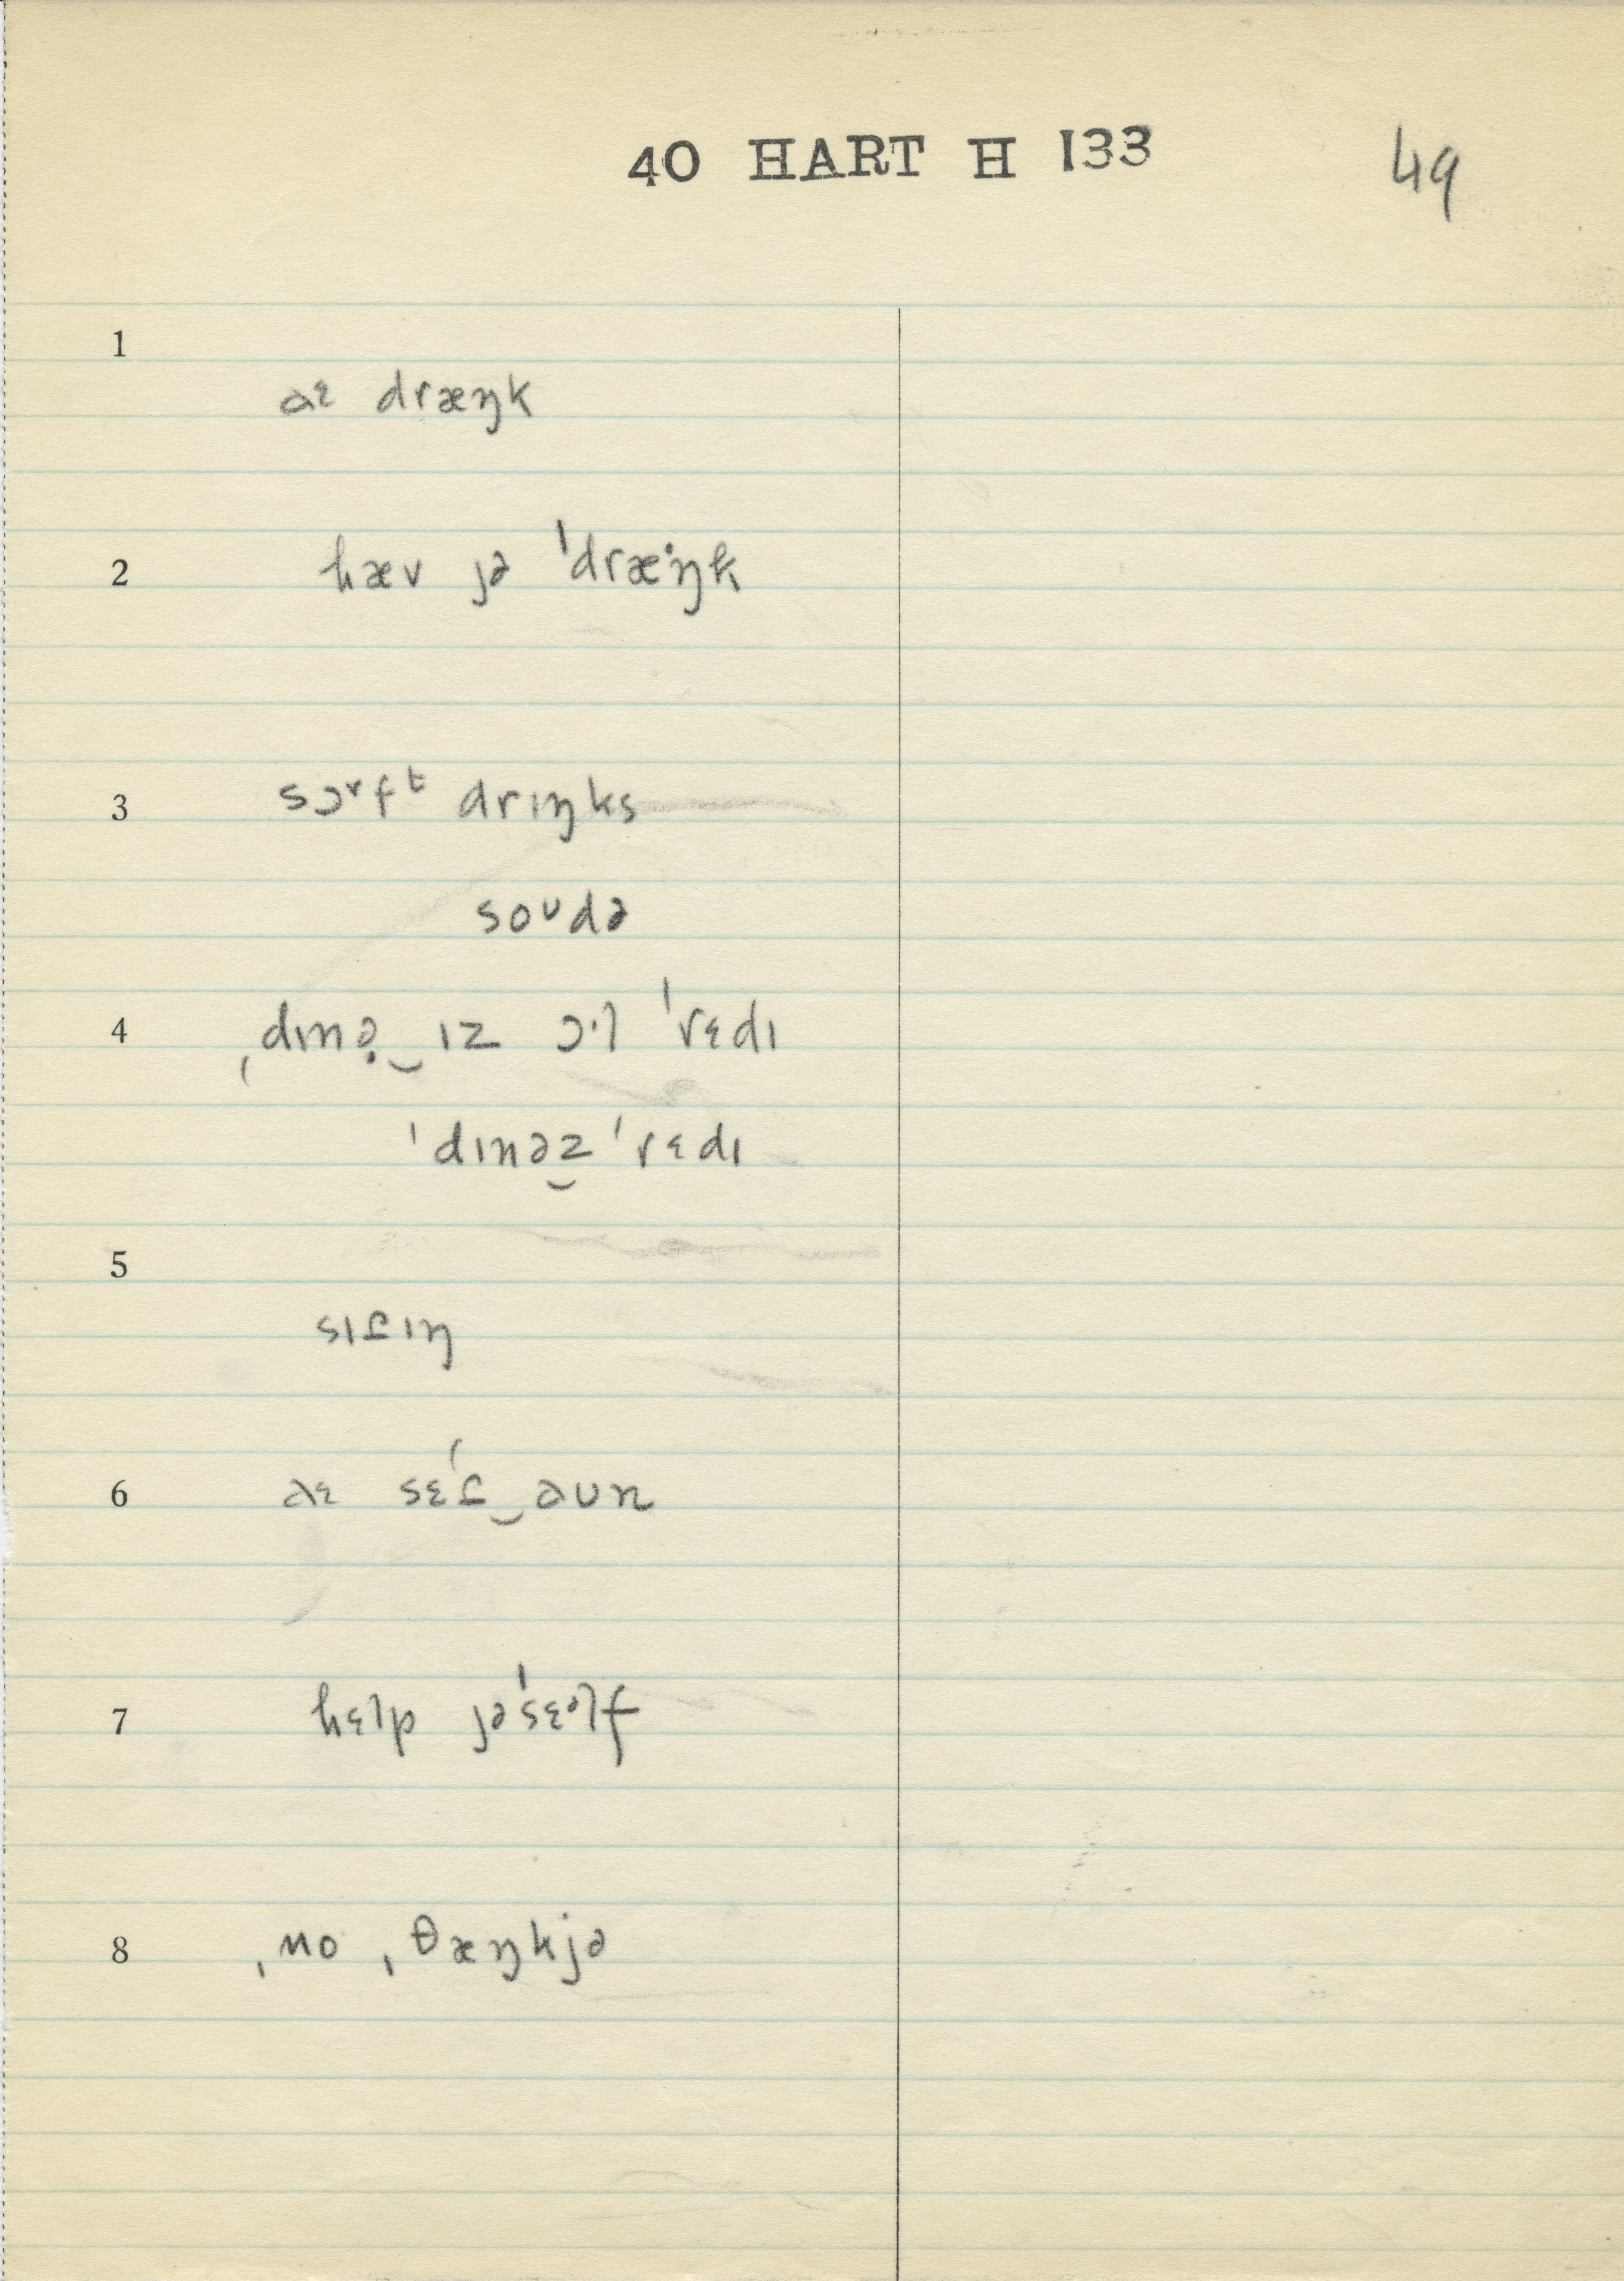 40 HART H 133 49
1
aɛ dræŋk
2 hæv jə ˈdræˑŋk
3 sɔᵛfᵗ drɪŋks
soᴜdə
4 ˌdɪnə̣‿ɪz ɔˑl ˈrɛdɪ
ˈdɪnəz ˈrɛdɪ
5
sɪtɪŋ
6 aɛ sɛˈt‿aᴜn
7 hɛlp jəˈsɛᵊlf
8 ˌno ˌθæŋkjə